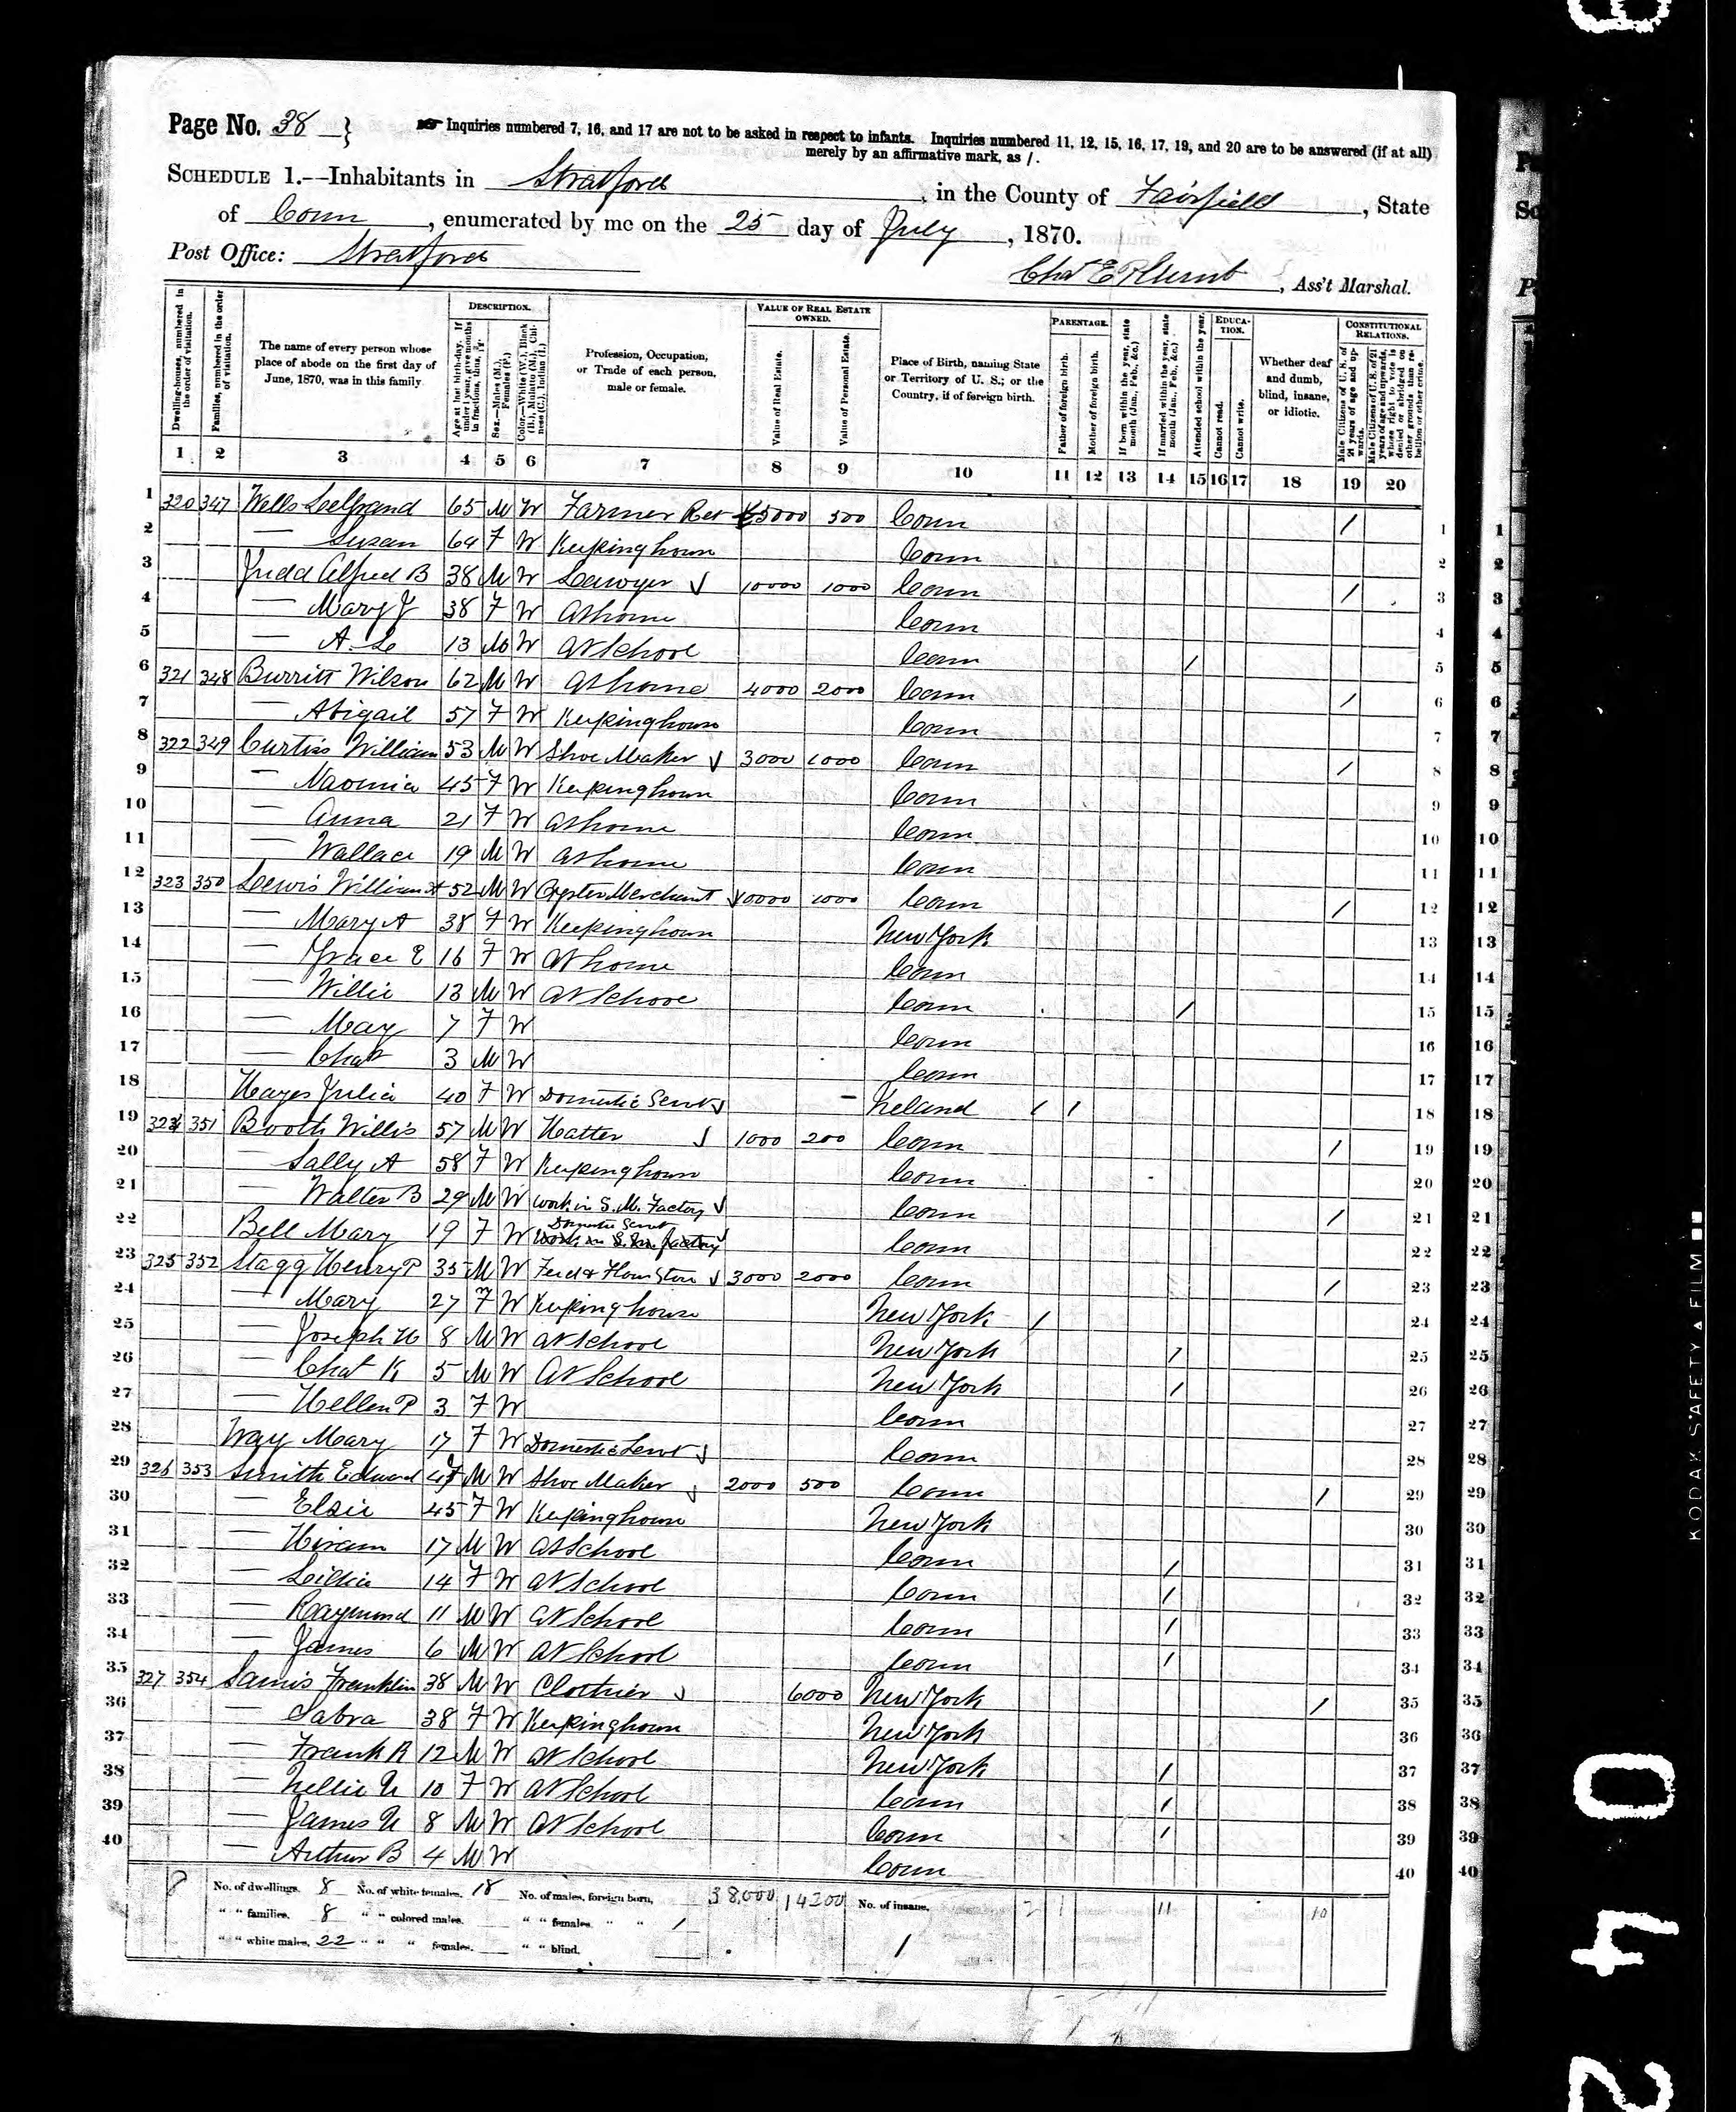 Page No. 38
Inquiries numbered 7, 16, and 17 are not to be asked in respect to infants. Inquiries numbered 11, 12, 15, 16, 17, 19, and 20 are to be answered (if at all)
merely by an affirmative mark, as /.
SCHEDULE 1.—Inhabitants in Stratford, in the County of Fairfield, State
of Conn, enumerated by me on the 25 day of July, 1870.
Post Office: Stratford
Chas E Plumb, Ass't Marshal.
Dwelling-houses, numbered in the order of visitation.
Families, numbered in the order of visitation.
The name of every person whose place of abode on the first day of June, 1870, was in this family.
DESCRIPTION.
Age at last birth-day. If under 1 year, give months in fractions, thus, 3/12.
Sex.—Males (M.), Females (F.)
Color.—White (W.), Black (B.), Mulatto (M.), Chinese (C.), Indian (I.)
Profession, Occupation, or Trade of each person, male or female.
VALUE OF REAL ESTATE OWNED.
Value of Real Estate.
Value of Personal Estate.
Place of Birth, naming State or Territory of U. S.; or the Country, if of foreign birth.
PARENTAGE.
Father of foreign birth.
Mother of foreign birth.
If born within the year, state month (Jan., Feb., &c.)
If married within the year, state month (Jan., Feb., &c.)
Attended school within the year.
EDUCATION.
Cannot read.
Cannot write.
Whether deaf and dumb, blind, insane, or idiotic.
CONSTITUTIONAL RELATIONS.
Male Citizens of U. S. of 21 years of age and upwards.
Male Citizens of U. S. of 21 years of age and upwards, whose right to vote is denied or abridged on other grounds than rebellion or other crime.
1 2 3 4 5 6 7 8 9 10 11 12 13 14 15 16 17 18 19 20
1 320 347 Wells LeGrand 65 M W Farmer Ret 5000 500 Conn / 1
2 — Susan 64 F W Keeping house Conn 2
3 Judd Alfred B 38 M W Lawyer 10000 1000 Conn / 3
4 — Mary J 38 F W At home Conn 4
5 — A. L 13 M W At School Conn / 5
6 321 348 Burritt Wilson 62 M W At home 4000 2000 Conn / 6
7 — Abigail 57 F W Keeping house Conn 7
8 322 349 Curtiss William 53 M W Shoe Maker 3000 1000 Conn / 8
9 — Naomia 45 F W Keeping house Conn 9
10 — Anna 21 F W At home Conn 10
11 — Wallace 19 M W At home Conn 11
12 323 350 Lewis William H 52 M W Oyster Merchant 10000 1000 Conn / 12
13 — Mary A 38 F W Keeping house New York 13
14 — Grace E 16 F W At home Conn 14
15 — Willie 13 M W At School Conn / 15
16 — May 7 F W Conn 16
17 — Chas 3 M W Conn 17
18 Hayes Julia 40 F W Domestic Servt Ireland / / 18
19 324 351 Booth Willis 57 M W Hatter 1000 200 Conn / 19
20 — Sally A 58 F W Keeping house Conn 20
21 — Walter B 29 M W work in S. M. Factory Conn / 21
22 Bell Mary 19 F W Domestic Servt Conn 22
23 325 352 Stagg Henry P 35 M W Feed & Flour Store 3000 2000 Conn / 23
24 — Mary 27 F W Keeping house New York / 24
25 — Joseph H 8 M W At School New York / 25
26 — Chas K 5 M W At School New York / 26
27 — Hellen P 3 F W Conn 27
28 Way Mary 17 F W Domestic Servt Conn 28
29 326 353 Smith Edward M W Shoe Maker 2000 500 Conn / 29
30 — Elsie 45 F W Keeping house New York 30
31 — Hiram 17 M W At School Conn / 31
32 — Lillia 14 F W At School Conn / 32
33 — Raymond 11 M W At School Conn / 33
34 — James 6 M W At School Conn / 34
35 327 354 Samis Franklin 38 M W Clothier 6000 New York / 35
36 — Sabra 38 F W Keeping house New York 36
37 — Frank R 12 M W At School New York / 37
38 — Nellie N 10 F W At School Conn / 38
39 — James N 8 M W At School Conn / 39
40 — Arthur B 4 M W Conn 40
No. of dwellings, 8 No. of white females, 18 No. of males, foreign born, 38,000 14200 No. of insane, 2 1 11 10
" " families, 8 " " colored males, " " females, " " 1
" " white males, 22 " " " females, " " blind, 1
KODAK SAFETY FILM